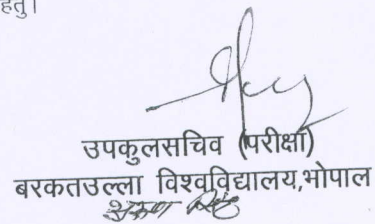 हेतु।
उपकुलसचिव (परीक्षा)
बरकतउल्ला विश्वविद्यालय,भोपाल